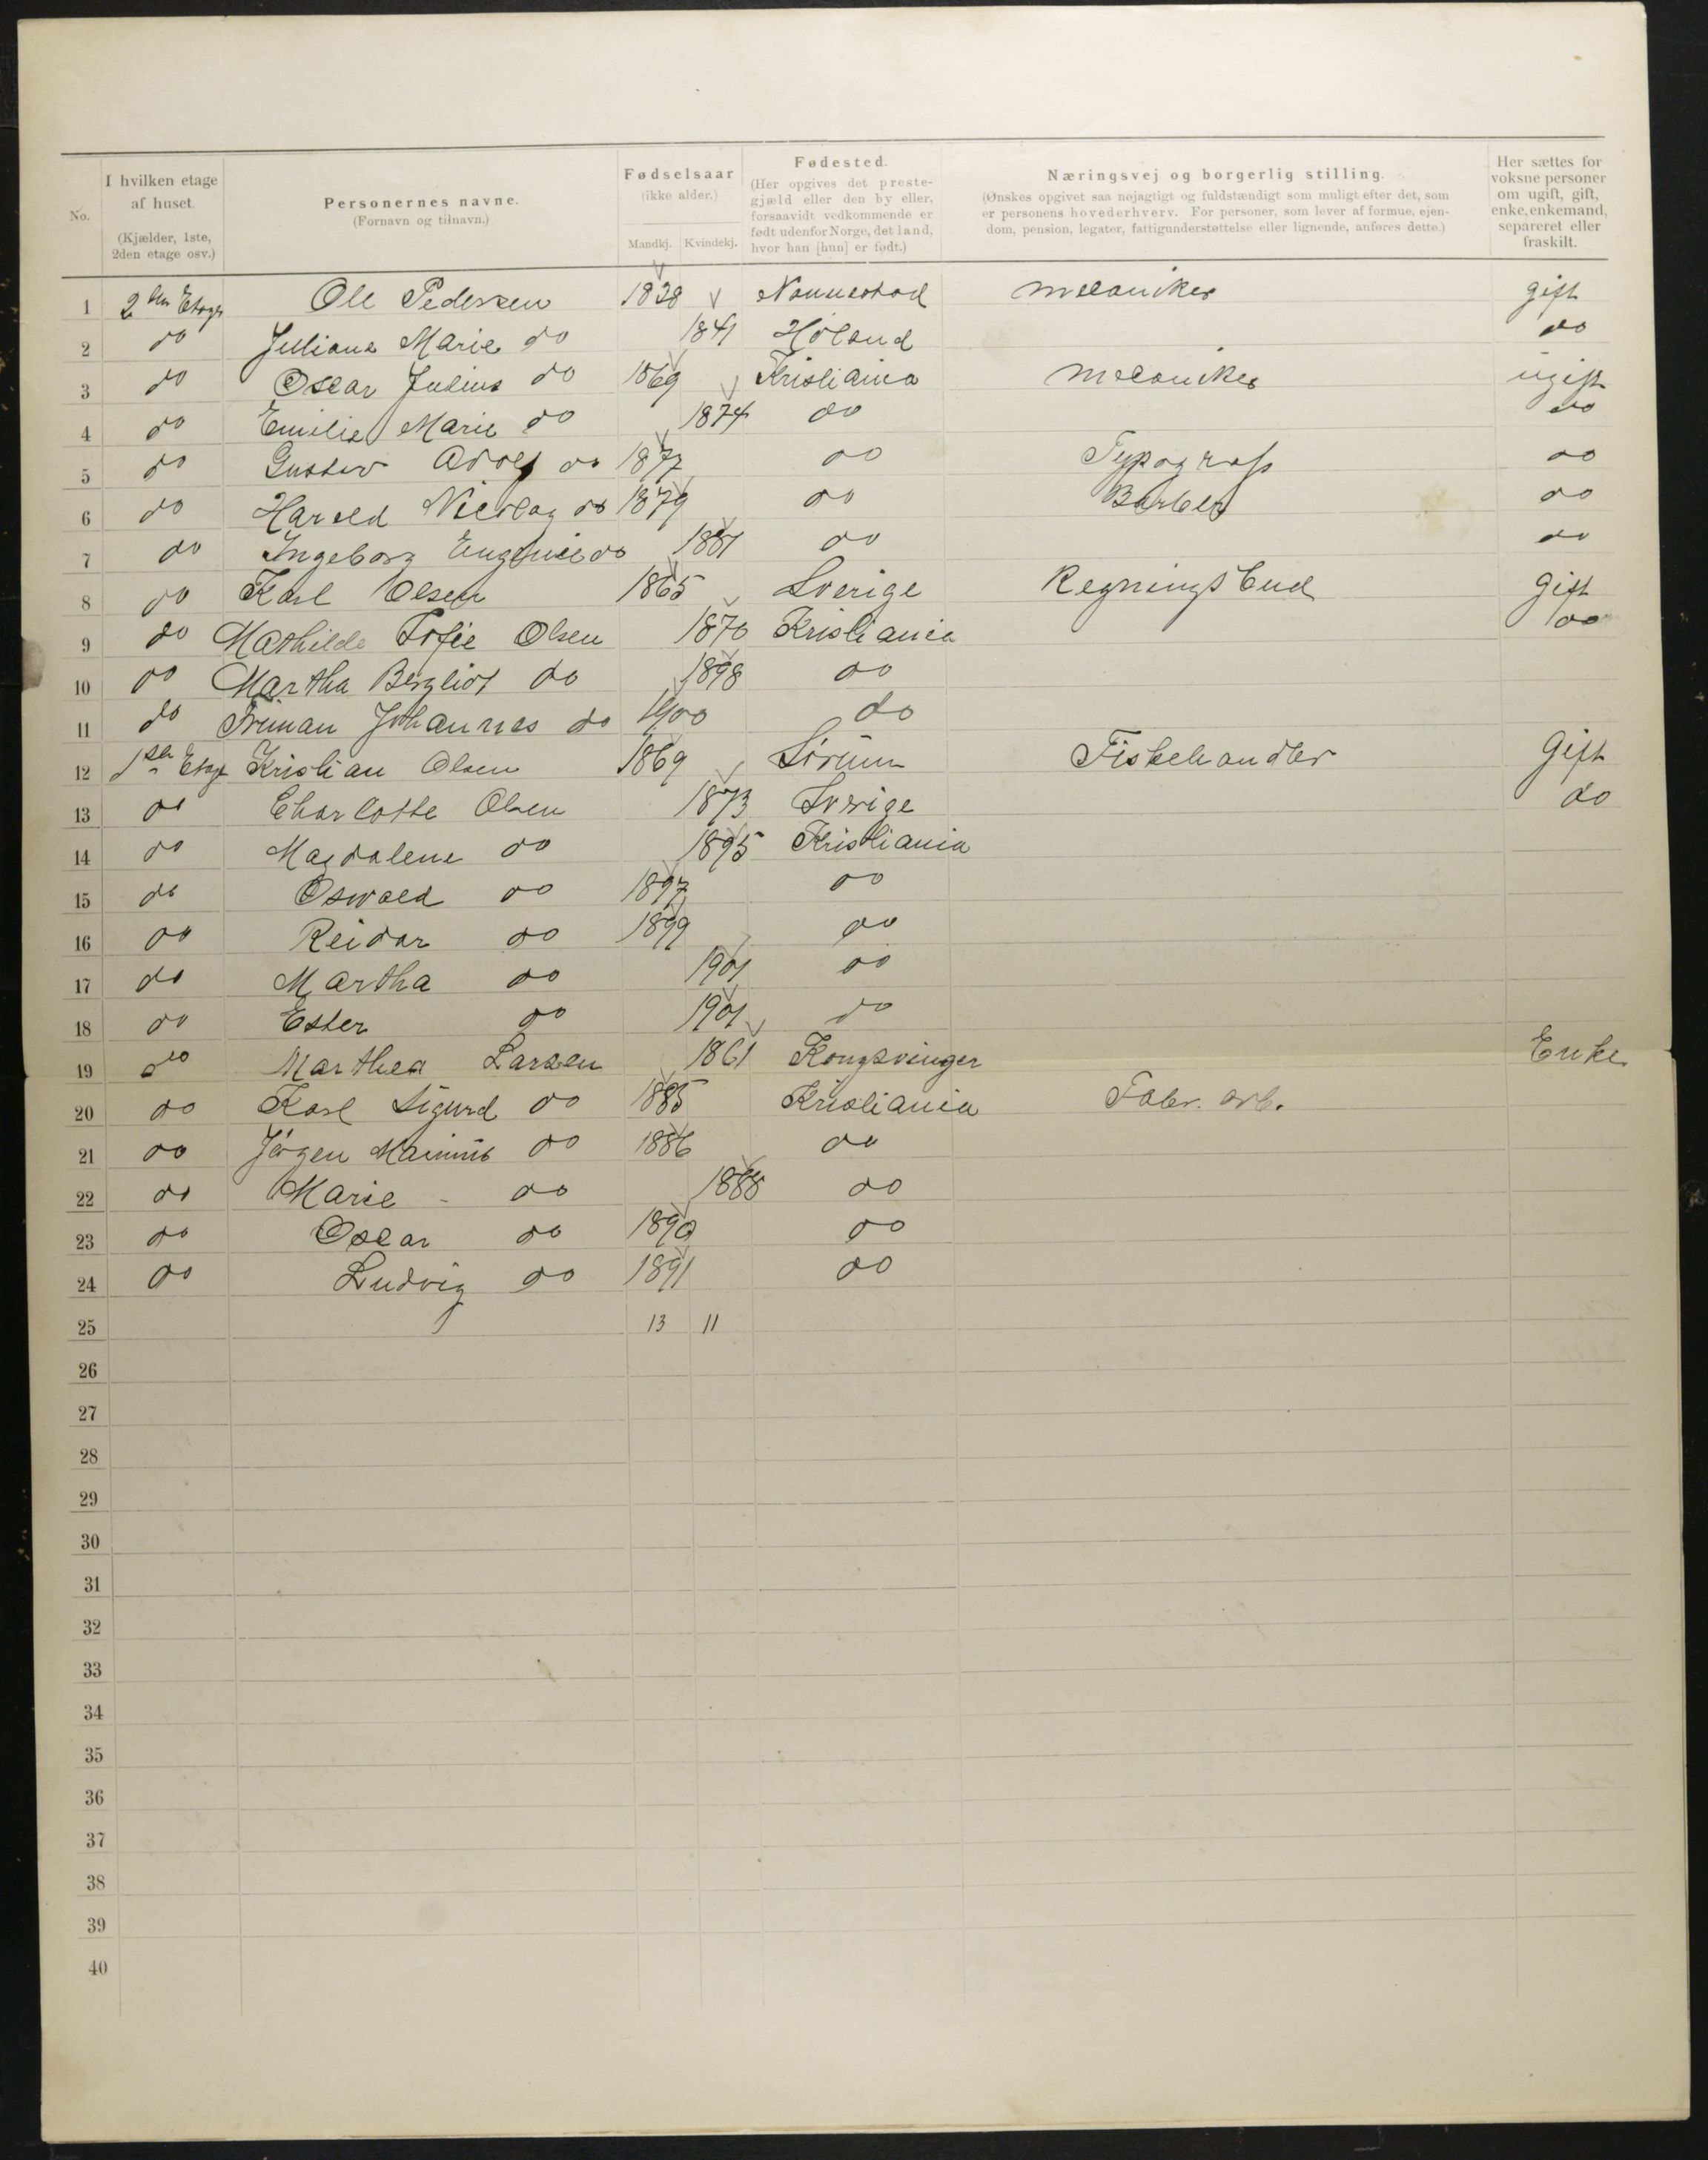 No.
I hvilken etage af huset. (Kjælder, 1ste, 2den etage osv.)
Personernes navne. (Fornavn og tilnavn.)
Fødselsaar (ikke alder.) Mandkj. Kvindekj.
Fødested. (Her opgives det prestegjæld eller den by eller, forsaavidt vedkommende er født udenfor Norge, det land, hvor han [hun] er født.)
Næringsvej og borgerlig stilling. (Ønskes opgivet saa nøjagtigt og fuldstændigt som muligt efter det, som er personens hovederhverv. For personer, som lever af formue, ejendom, pension, legater, fattigunderstøttelse eller lignende, anføres dette.)
Her sættes for voksne personer om ugift, gift, enke, enkemand, separeret eller fraskilt.
1 2den Etage Ole Pedersen 1838 Nannestad mecaniker gift
2 do Juliana Marie do 1841 Høland do
3 do Oscar Julius do 1869 Kristiania mecaniker ugift
4 do Emilie Marie do 1874 do do
5 do Gustav Adolf do 1877 do Typograf do
6 do Harald Nicolay do 1879 do Barber do
7 do Ingeborg Eugenie do 1881 do do
8 do Karl Olsen 1865 Sverige Regningsbud gift
9 do Mathilde Sofie Olsen 1870 Kristiania do
10 do Martha Bergliot do 1898 do
11 do Johannes do 1900 do
12 1ste Etage Kristian Olsen 1869 Sørum Fiskehandler Gift
13 do Charlotte Olsen 1873 Sverige do
14 do Magdalene do 1895 Kristiania
15 do Oswald do 1897 do
16 do Reidar do 1899 do
17 do Martha do 1901 do
18 do Ester do 1901 do
19 do Marthea Larsen 1861 Kongsvinger Enke
20 do Karl Sigurd do 1885 Kristiania Fabr. arb.
21 do Jørgen do 1886 do
22 do Marie - do 1888 do
23 do Oscar do 1890 do
24 do Ludvig do 1891 do
25 13 11
26
27
28
29
30
31
32
33
34
35
36
37
38
39
40